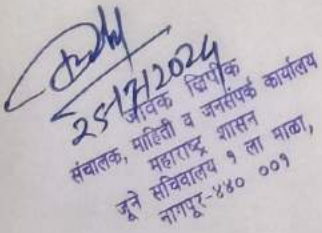 25/7/2024
जावक लिपीक
संचालक, माहिती व जनसंपर्क कार्यालय
महाराष्ट्र शासन
जूने सचिवालय १ ला माळा,
नागपूर-४४० ००१